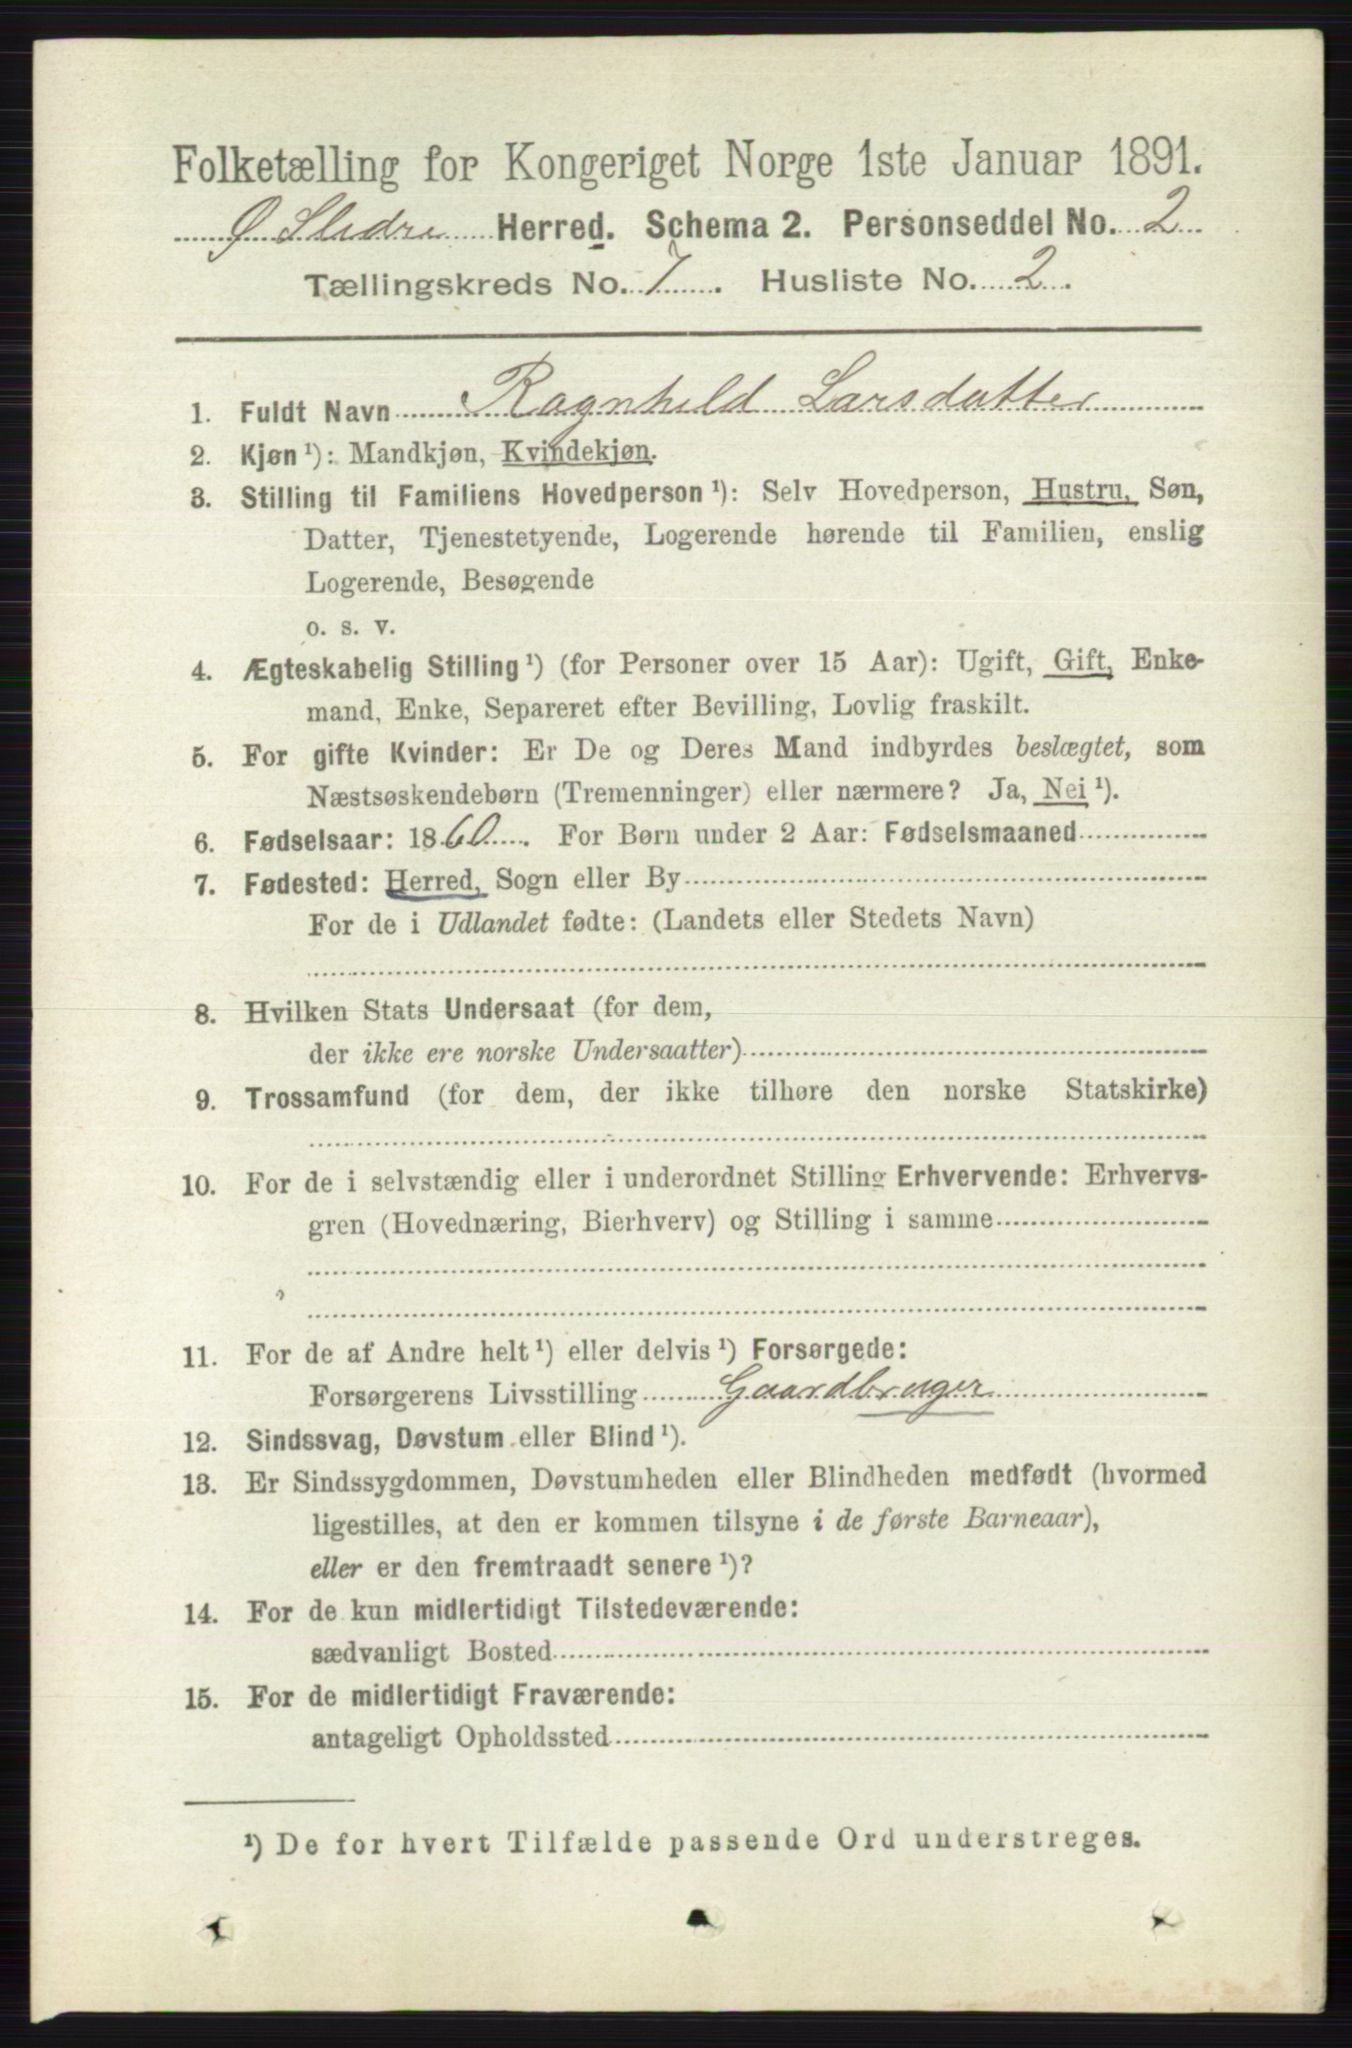 Folketælling for Kongeriget Norge 1ste Januar 1891.
Ø. Slidre Herred. Schema 2. Personseddel No. 2
Tællingskreds No. 7. Husliste No. 2.
1. Fuldt Navn Ragnhild Larsdatter
2. Kjøn ¹): Mandkjøn, Kvindekjøn.
3. Stilling til Familiens Hovedperson ¹): Selv Hovedperson, Hustru, Søn,
Datter, Tjenestetyende, Logerende hørende til Familien, enslig
Logerende, Besøgende
o. s. v.
4. Ægteskabelig Stilling ¹) (for Personer over 15 Aar): Ugift, Gift, Enke-
mand, Enke, Separeret efter Bevilling, Lovlig fraskilt.
5. For gifte Kvinder: Er De og Deres Mand indbyrdes beslægtet, som
Næstsøskendebørn (Tremenninger) eller nærmere? Ja, Nei ¹).
6. Fødselsaar: 1860. For Børn under 2 Aar: Fødselsmaaned
7. Fødested: Herred, Sogn eller By
For de i Udlandet fødte: (Landets eller Stedets Navn)
8. Hvilken Stats Undersaat (for dem,
der ikke ere norske Undersaatter)
9. Trossamfund (for dem, der ikke tilhøre den norske Statskirke)
10. For de i selvstændig eller i underordnet Stilling Erhvervende: Erhvervs-
gren (Hovednæring, Bierhverv) og Stilling i samme
11. For de af Andre helt ¹) eller delvis ¹) Forsørgede:
Forsørgerens Livsstilling Gaardbruger
12. Sindssvag, Døvstum eller Blind ¹).
13. Er Sindssygdommen, Døvstumheden eller Blindheden medfødt (hvormed
ligestilles, at den er kommen tilsyne i de første Barneaar),
eller er den fremtraadt senere ¹)?
14. For de kun midlertidigt Tilstedeværende:
sædvanligt Bosted
15. For de midlertidigt Fraværende:
antageligt Opholdssted
¹) De for hvert Tilfælde passende Ord understreges.